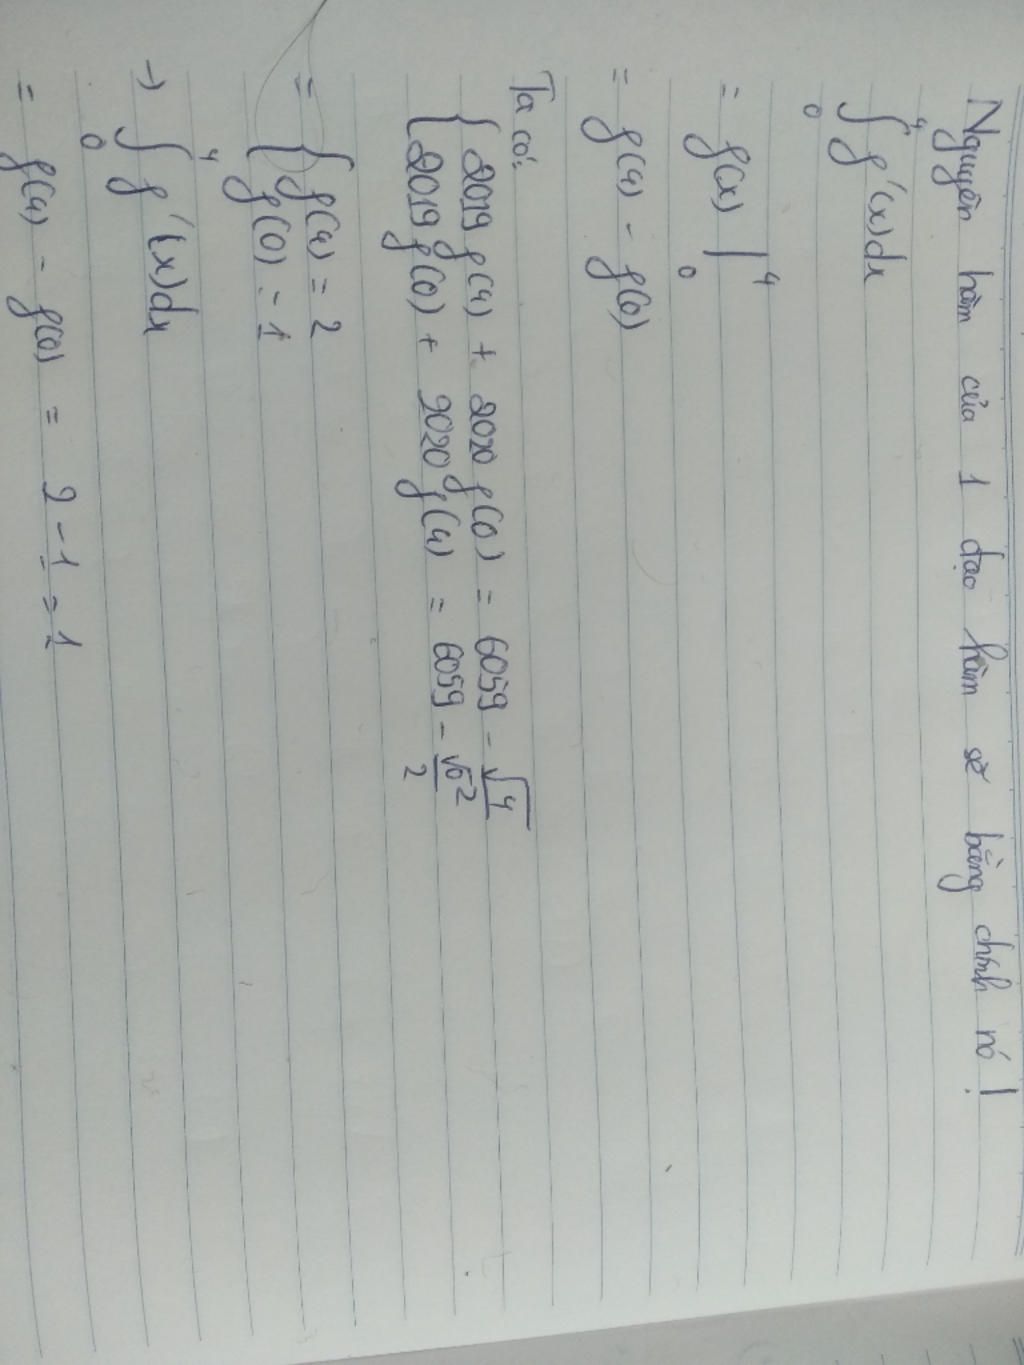 Nguyên hàm của 1 đạo hàm sẽ bằng chính nó!
∫₀⁴ f'(x)dx
= f(x) |₀⁴
= f(4) - f(0)
Ta có:
{ 2019 f(4) + 2020 f(0) = 6059 - √4
{ 2019 f(0) + 2020 f(4) = 6059 - √0²/2
= { f(4) = 2
{ f(0) = 1
→ ∫₀⁴ f'(x)dx
= f(4) - f(0) = 2 - 1 = 1